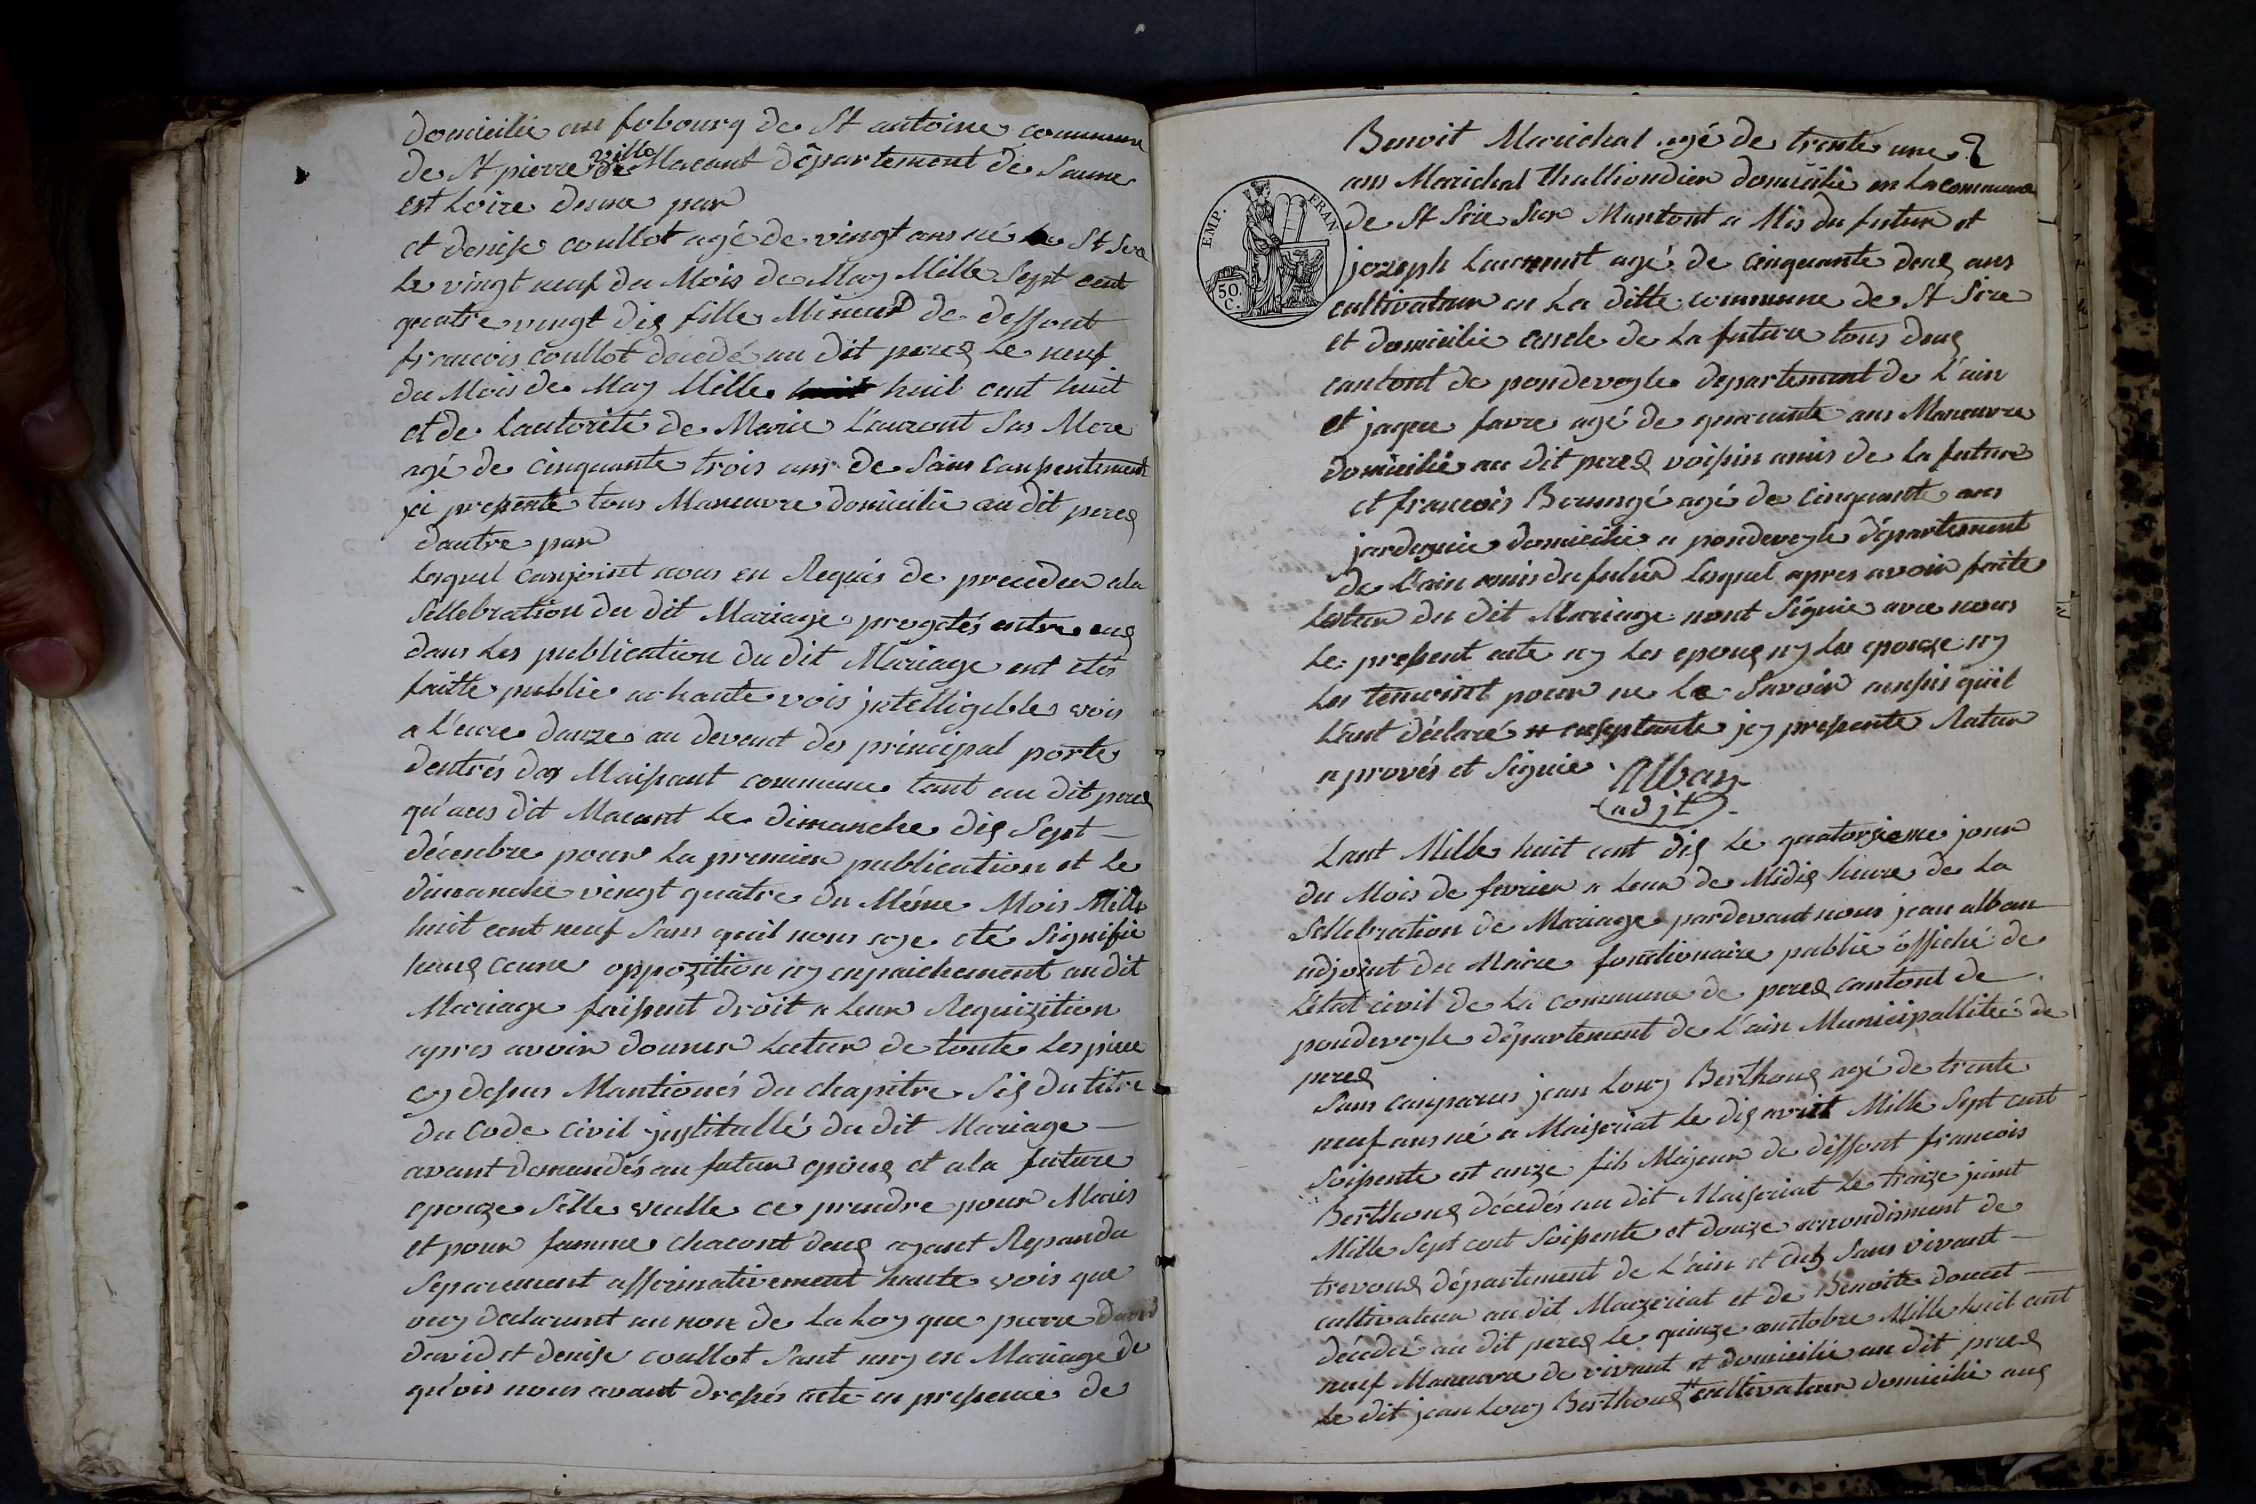 domicilié au fobourg de St antoine commune
de St pierre ville de Macant département de Saune
est Loire dune par
et denise coullot agé de vingt ans né a St Sire
Le vingt neuf du Mois de May Mille Sept cent
quatre vingt dix fille Mineur de deffont
francois coullot décedé au dit perex Le neuf
du Mois de May Mille huit cent huit
et de Lautorité de Marie Laurent Sas Mere
agé de cinquante trois ans de Sain Canpentement
ici presente tous Maneuvre domicilié au dit perex
dautre par
Lesquel Canjoint nous en Requis de proceder ala
Sellebration du dit Mariage progetés entre eux
dans Les publication du dit Mariage ont etés
faitte publie a haute vois jntelligible vois
a L'eure danze au devant des principal porte
dentrés des Maissant commune tant au dit perex
qu'aus dit Macant Le dimanche dix Sept
décenbre pour La premier publication et Le
dimanche vingt quatre du Méme Mois Mille
huit cent neuf Sans quil nous aye eté Signifié
haux cune oppozition ny enpaichement au dit
Mariage faissent droit a Leur Requizition
apres avoir donner Lectur de toute Les piece
cy dessus Mantionés du chapitre Six du titre
du Code Civil justitullé du dit Mariage
avant demandés au futur epoux et ala future
epouze Sille veulle ce prendre pour Maris
et pour famme chacont deux ayant Repandu
Separement affirmativement haute vois que
ouy declarant au nom de La Loy que pierre david
david et denise coullot Sant uny en Mariage de
qu'ois nous avant dressés acte en presence de
Benoit Marichal agé de trente une
ans Marichal thalliondier domicilié en La commune
de St Sire Sur Mantont a Mis du futur et
jozeph Laurent agé de cinquante deux ans
cultivateur en La ditte commune de St Sire
et domicilié oncle de La future tous deux
cantont de pondeveyle departement de L'ain
et jaque favre agé de quarante ans Maneuvre
domicilié au dit perex voisin amis de La future
et francois Berungé agé de cinquante ans
jardeynié domicilié a pondeveyle département
de L'ain amis du futur Lesquel apres avoir faite
Lectur du dit Mariage nont Signie avec nous
Le present acte ny Les epoux ny Les epouze ny
Les temoint pour ne Le Savoir ainsis quil
L'ant déclaré # jcy presente Ratur
aprovés et Signie. Alban
adjt
Lant Mille huit cent dix Le quatorzieme jour
du Mois de fevrier a Leur de Midix heure de La
Sellebration de Mariage pardevant nous jean alban
adjoint du Maire fonctionaire public óffiché de
L'état civil de La commune de perex cantont de
pondeveyle département de L'ain Municipallitée de
perex
Sant canparus jean Louy Berthoux agé de trente
neuf ans né a Maiseriat le dix avrit Mille Sept cent
Soissente est onze fils Majeur de deffont francois
Berthoux décedés au dit Maiseriat Le treize juint
Mille Sept cent Soissente et douze arrondisment de
trevoux département de L'ain et de Sans vivant
cultivateur au dit Maizeriat et de Benoite doucet
décédée au dit perex Le quinze auctobre Mille huit cent
neuf Maneuvre de vivant et domicilié au dit perex
Le dit jean Louy Berthoux # cultivateur domicilié aux
EMP. FRAN
50
C.